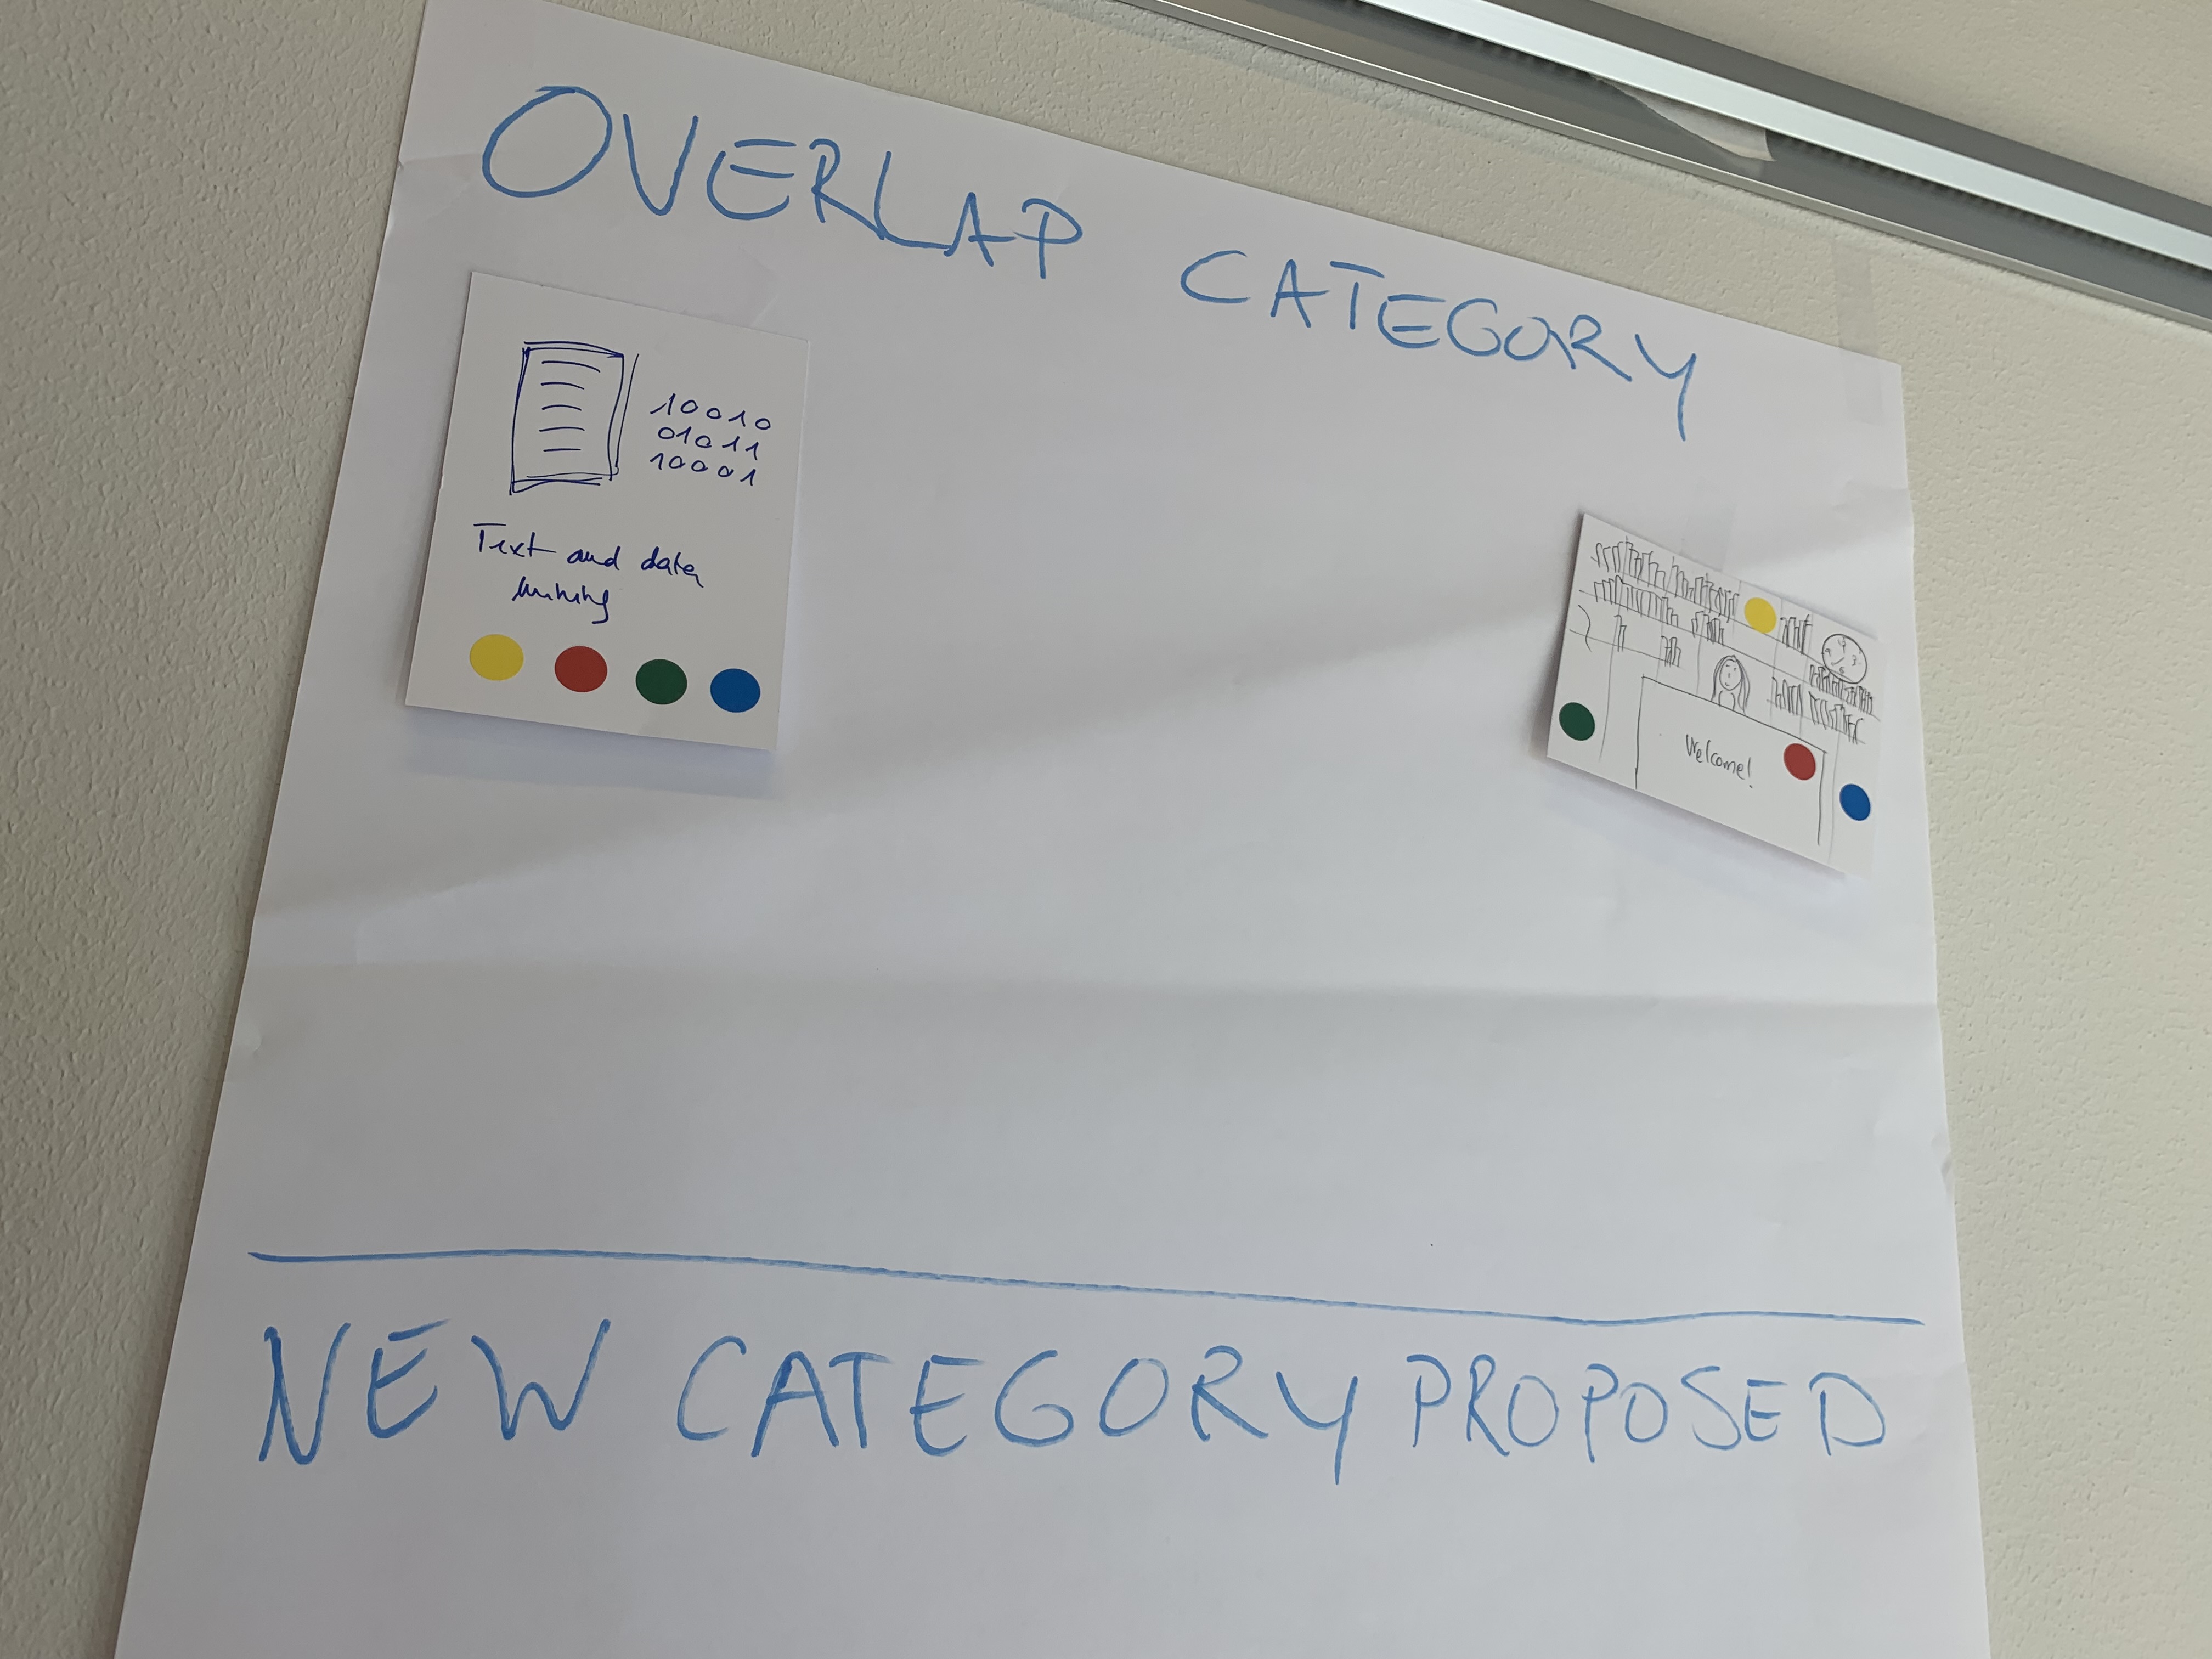 OVERLAP CATEGORY
10010
01011
10001
Text and data
mining
Welcome!
NEW CATEGORY PROPOSED